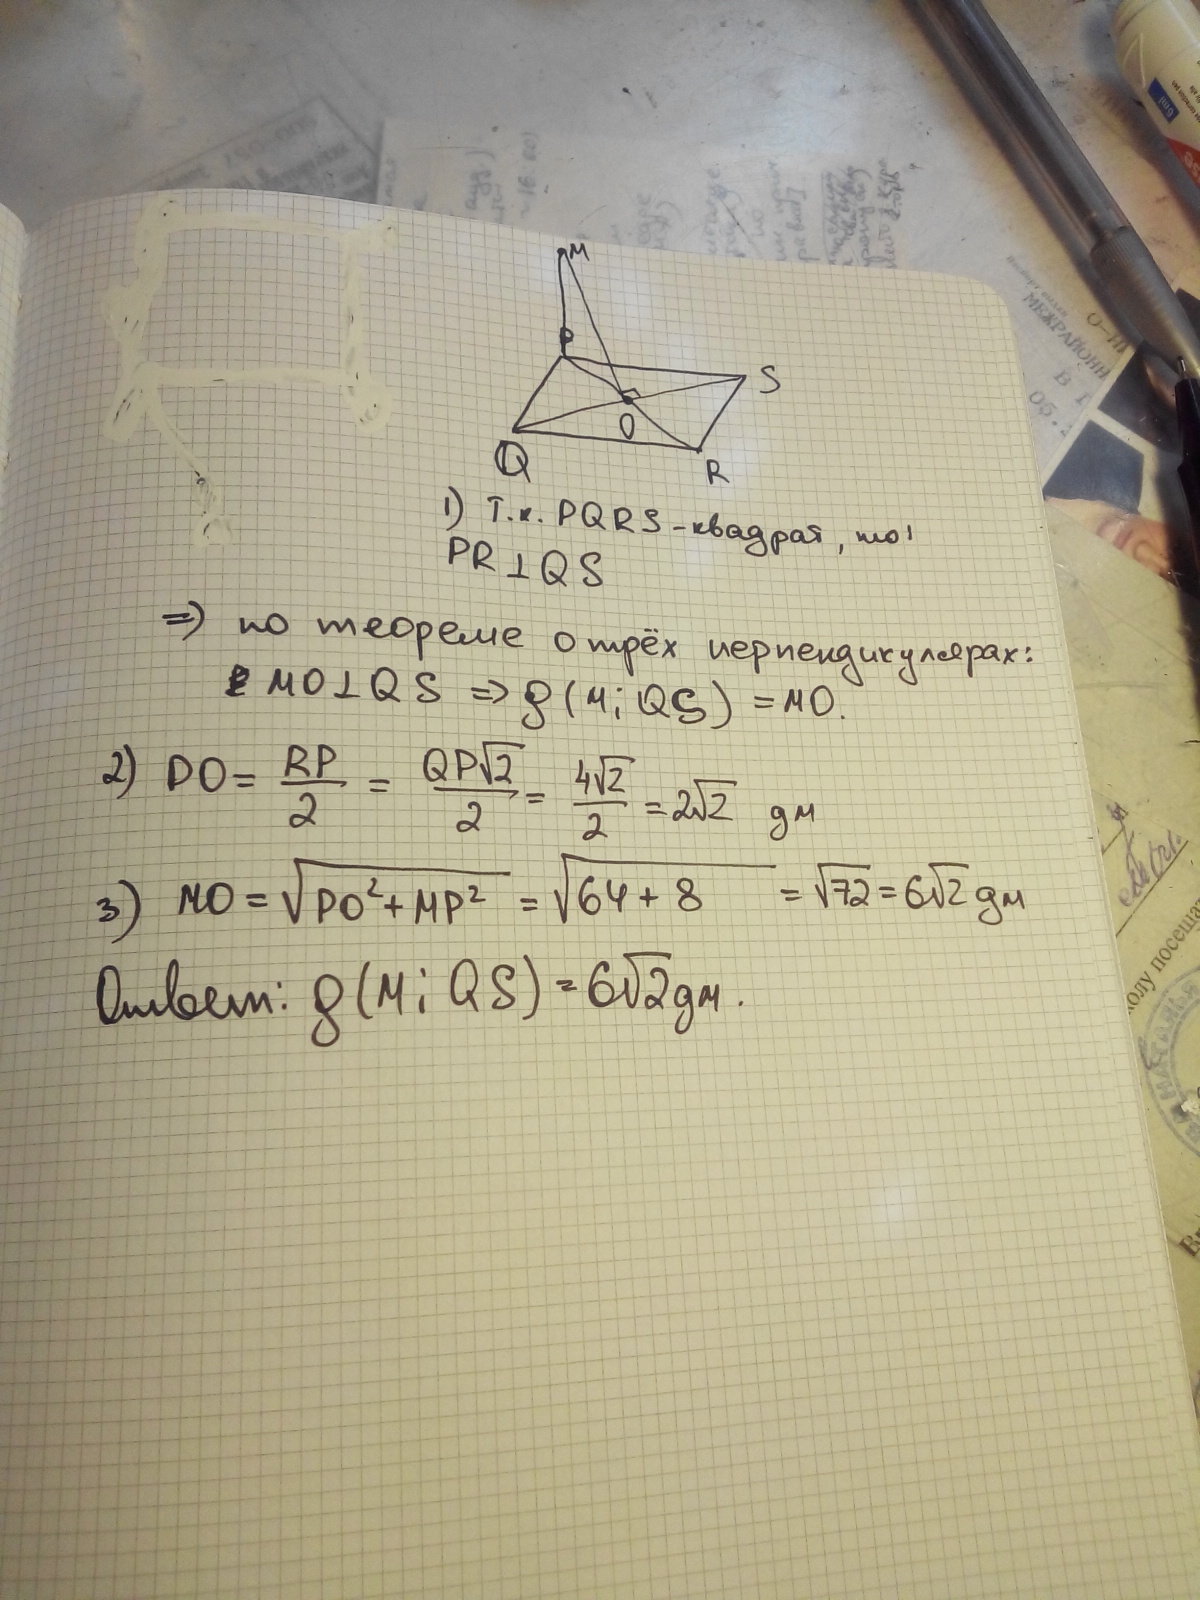 M
P
S
O
Q
R
1) Т.к. PQRS - квадрат, то:
PR ⊥ QS
=> по теореме о трёх перпендикулярах:
MO ⊥ QS => ρ(M; QS) = MO.
2) PO = RP/2 = QP√2/2 = 4√2/2 = 2√2 дм
3) MO = √(PO² + MP²) = √(64 + 8) = √72 = 6√2 дм
Ответ: ρ(M; QS) = 6√2 дм.
~16.00)
МЕЖРАЙОНН
В
Об.
колу посещат